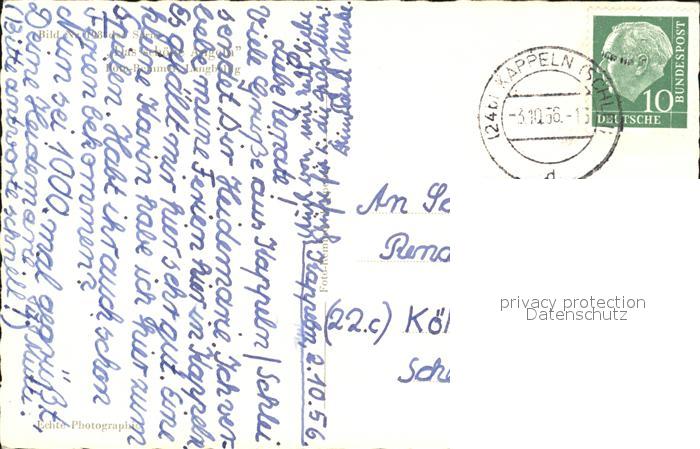 Bild Nr. 108 der Serie
"Das schöne Angeln"
Foto-Remmer, Langballig
Echte Photographie
Kappeln 2.10.56.
Liebe Renate!
Viele Grüße aus Kappeln / Schlei
sendet Dir Heidemarie. Ich ver-
lebe meine Ferien hier in Kappeln.
Es gefällt mir hier sehr gut. Eine
kleine Karin habe ich hier zum
Spielen. Habt ihr auch schon
Ferien bekommen?
Nun sei 1000 mal gegrüßt,
Deine Heidemarie
(Bitte antworte schnell!)
(24b) KAPPELN (SCHLEI)
-3.10.56.-15
d
10
DEUTSCHE
BUNDESPOST
An
(22.c) Köl
privacy protection
Datenschutz